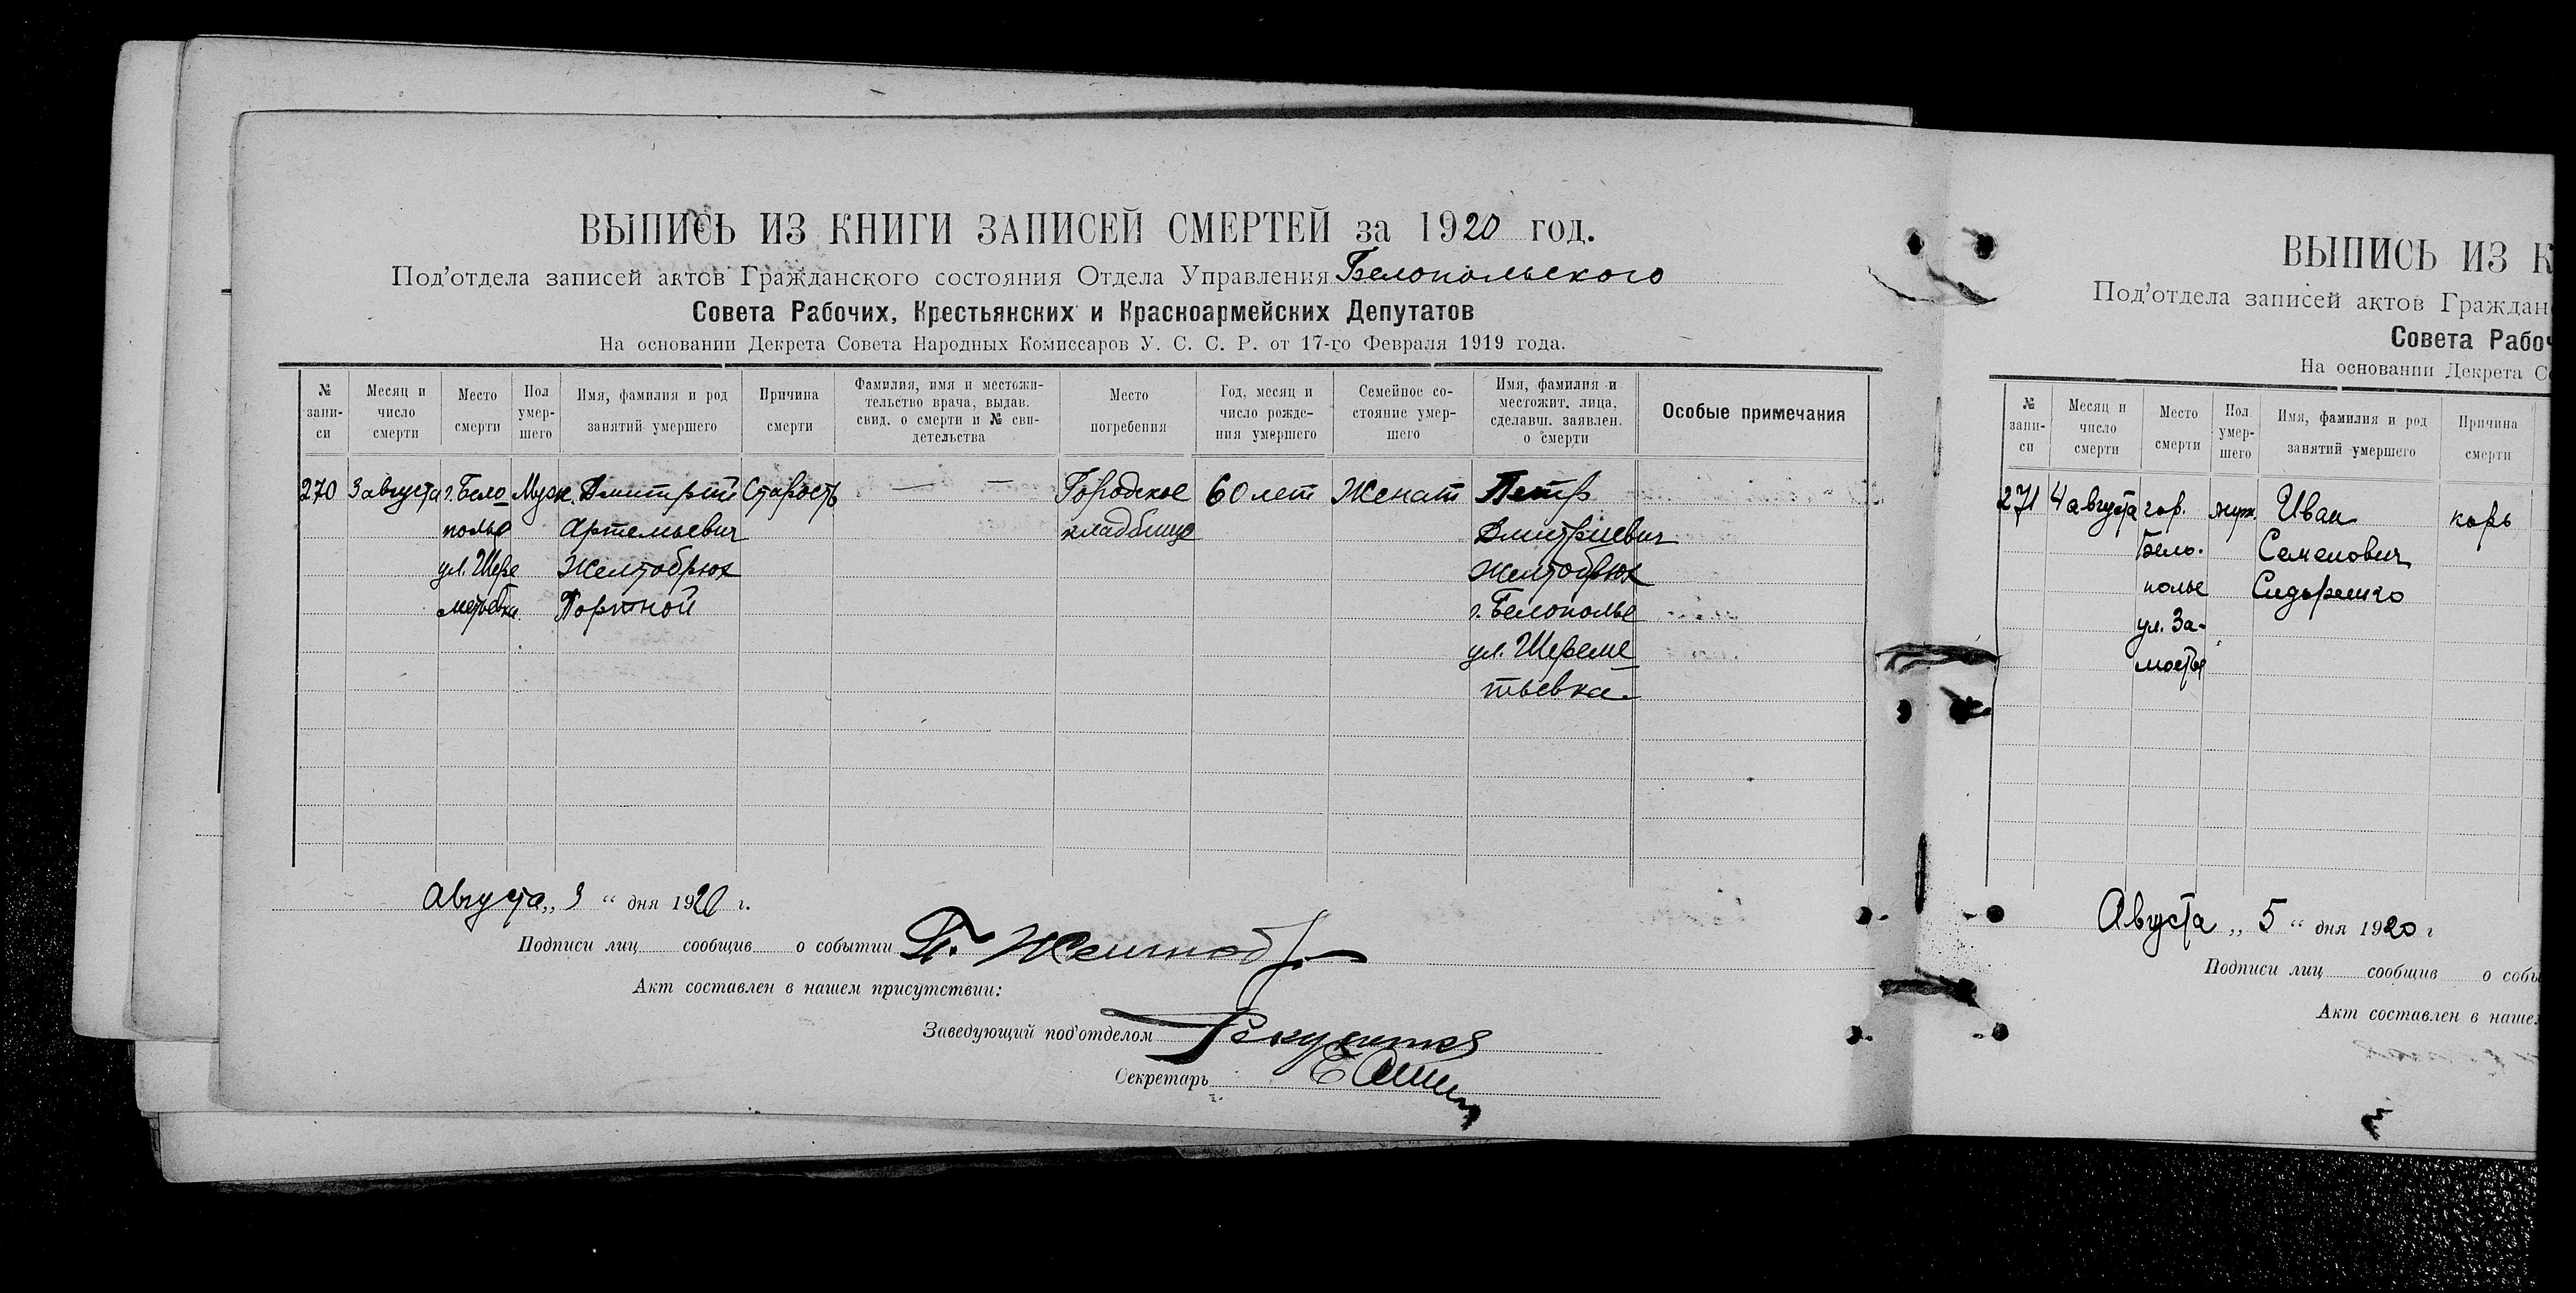 ВЫПИСЬ ИЗ КНИГИ ЗАПИСЕЙ СМЕРТЕЙ за 1920 год.
Под'отдела записей актов Гражданского состояния Отдела Управления Белопольского
Совета Рабочих, Крестьянских и Красноармейских Депутатов
На основании Декрета Совета Народных Комиссаров У. С. С. Р. от 17-го Февраля 1919 года.
№ запи-
си
Месяц и
число
смерти
Место
смерти
Пол
умер-
шего
Имя, фамилия и род
занятий умершего
Причина
смерти
Фамилия, имя и местожи-
тельство врача, выдав.
свид. о смерти и № сви-
детельства
Место
погребения
Год, месяц и
число рожде-
ния умершего
Семейное со-
стояние умер-
шего
Имя, фамилия и
местожит. лица,
сделавш. заявлен.
о смерти
Особые примечания
270
3 августа
г. Бело
полье
ул. Шере
метьевка.
Муж.
Дмитрий
Артемьевич
Желтобрюх
Портной
Старость
— —
Городское
кладбище
60 лет
Женат
Петр
Дмитриевич
Желтобрюх
г. Белополье
ул. Шереме
тьевка.
Августа „ 3 “ дня 1920 г.
Подписи лиц сообщив о событии П. Желтобр
Акт составлен в нашем присутствии:
Заведующий под'отделом
Секретарь
ВЫПИСЬ ИЗ К
Под'отдела записей актов Граждан
Совета Рабоч
На основании Декрета Со
№
запи-
си
Месяц и
число
смерти
Место
смерти
Пол
умер-
шего
Имя, фамилия и род
занятий умершего
Причина
смерти
271
4 августа
гор.
Бело-
полье
ул. За-
мостье
муж.
Иван
Семенович
Сидоренко
корь
Августа „ 5 “ дня 1920 г
Подписи лиц сообщив о собы
Акт составлен в наше